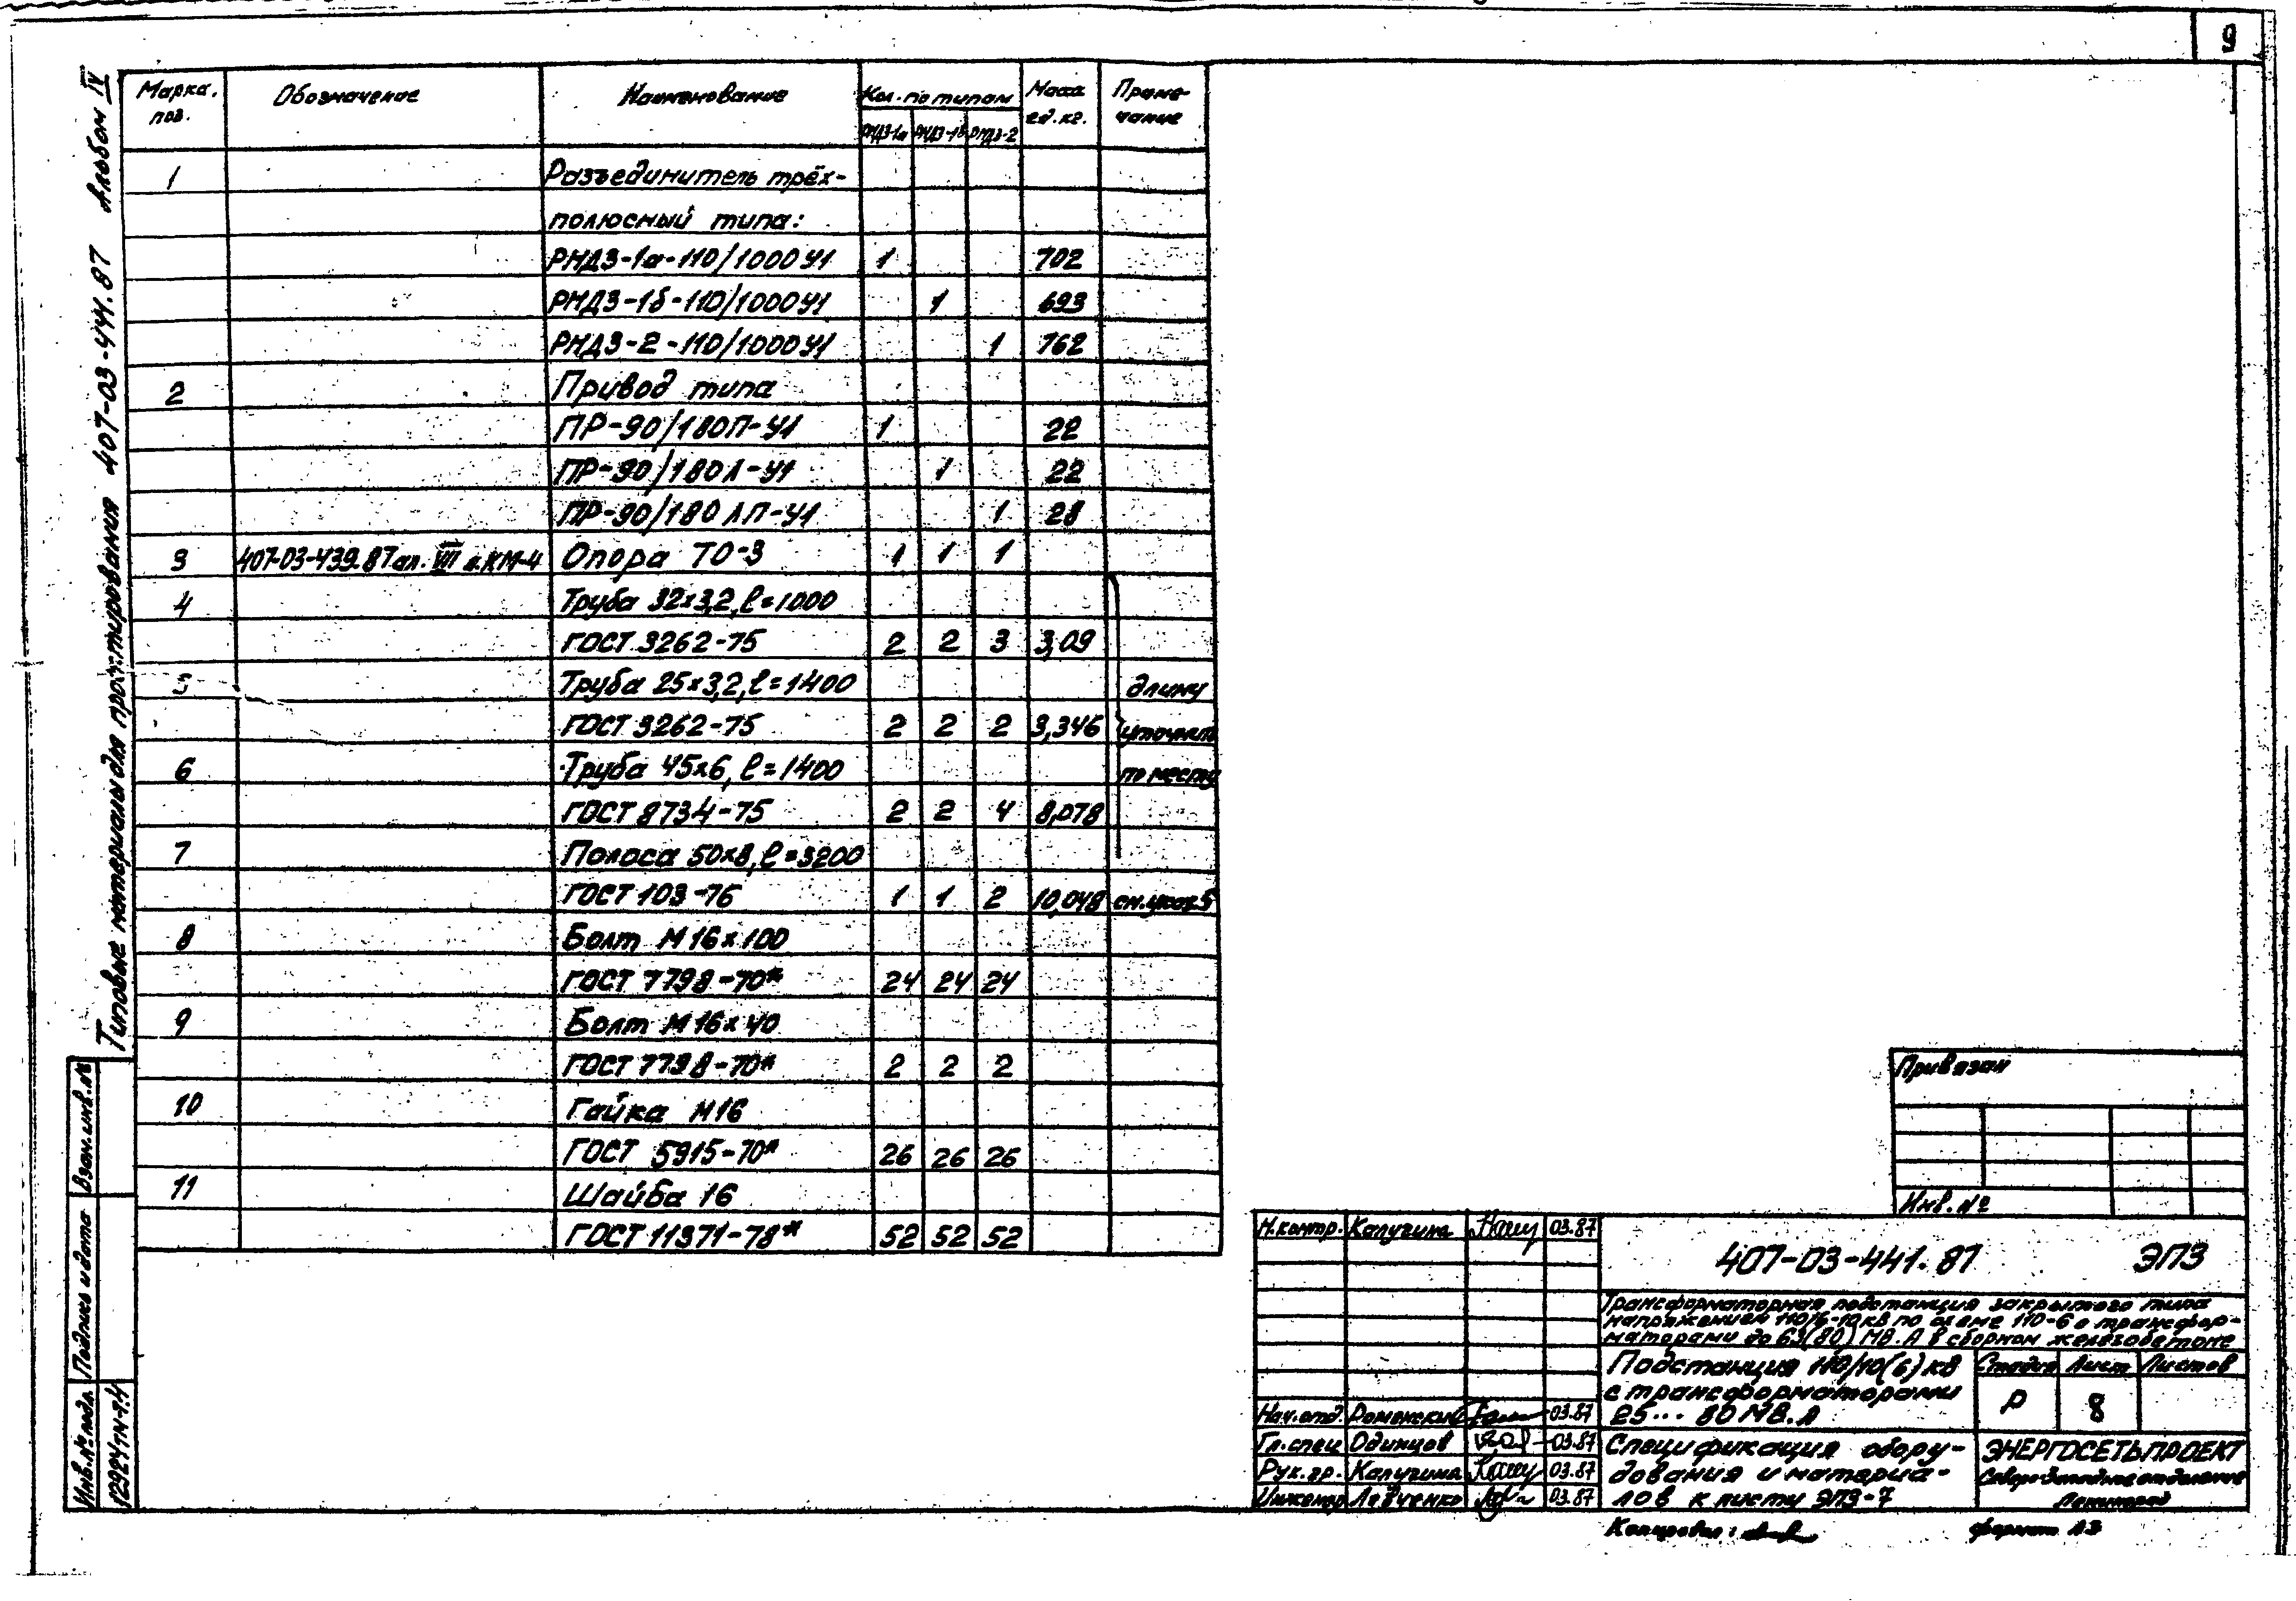 9
Альбом IV
Типовые материалы для проектирования 407-03-441.87
Марка, поз. Обозначение Наименование Кол. по типам Масса ед. кг. Приме-чание
РНДЗ-1а РНДЗ-1б РНДЗ-2
1 Разъединитель трёх-
полюсный типа:
РНДЗ-1а-110/1000У1 1 702
РНДЗ-1б-110/1000У1 1 693
РНДЗ-2-110/1000У1 1 762
2 Привод типа
ПР-90/180П-У1 1 22
ПР-90/180Л-У1 1 22
ПР-90/180ЛП-У1 1 28
3 407-03-439.87 ал. VIII л.КМ-4 Опора ТО-3 1 1 1
4 Труба 32х3,2, ℓ=1000
ГОСТ 3262-75 2 2 3 3,09
5 Труба 25х3,2, ℓ=1400 длину
ГОСТ 3262-75 2 2 2 3,346 уточнить
6 Труба 45х6, ℓ=1400 по месту
ГОСТ 8734-75 2 2 4 8,078
7 Полоса 50х8, ℓ=3200
ГОСТ 103-76 1 1 2 10,048 см.указ.5
8 Болт М16х100
ГОСТ 7798-70* 24 24 24
9 Болт М16х40
ГОСТ 7798-70* 2 2 2
10 Гайка М16
ГОСТ 5915-70* 26 26 26
11 Шайба 16
ГОСТ 11371-78* 52 52 52
Взам.инв.№
Подпись и дата
Инв.№ подл.
12924тм-т.4
Привязан
Инв. №
Н.контр. Калугина 03.87
407-03-441.87 ЭП3
Трансформаторная подстанция закрытого типа
напряжением 110/6-10 кв по схеме 110-6 с трансфор-
маторами до 63(80) МВ.А в сборном железобетоне
Подстанция 110/10(6) кВ
с трансформаторами
25...80 МВ.А
Стадия Лист Листов
Р 8
Нач.отд. Роменский 03.87
Гл.спец Одинцов 03.87
Рук.гр. Калугина 03.87
Инженер Левченко 03.87
Спецификация обору-
дования и материа-
лов к листу ЭП3-7
ЭНЕРГОСЕТЬПРОЕКТ
Северо-Западное отделение
Ленинград
Копировал:
формат А3